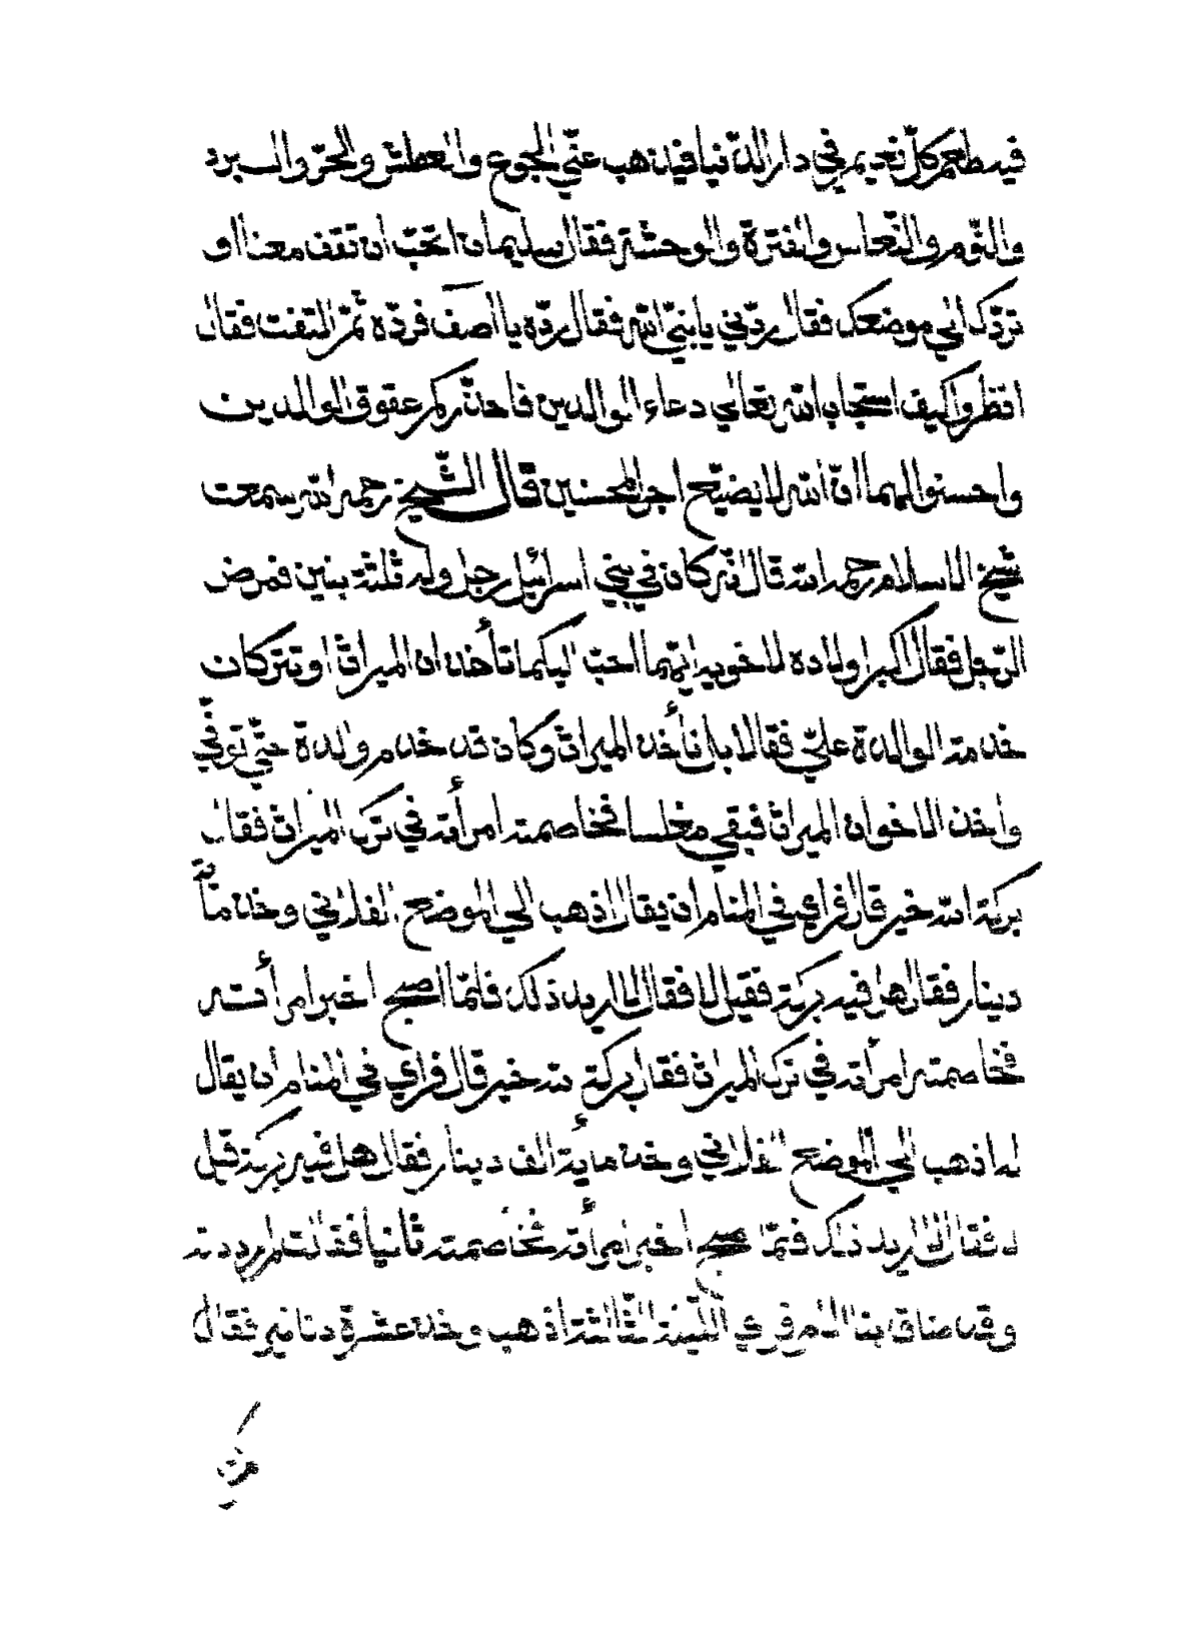 فيه طعم كلّ نعيم في دار الدّنيا فيذهب عنّي الجوع والعطش والحرّ والبرد
والنّوم والنّعاس والفترة والوحشة فقال سليمان اتحبّ ان تقف معنا او
نردّك الي موضعك فقال ردّني يا نبيّ الله فقال ردّه يا اٰصف فردّه ثمّ التفت فقال
انظروا كيف استجاب الله تعالي دعاء الوالدين فاحذّركم عقوق الوالدين
واحسنوا اليهما انّ الله لا يضيّع اجر المحسنين قال الشّيخ رحمه الله سمعت
شيخ الاسلام رحمه الله قال انّه كان في بني اسرائيل رجل وله ثلثة بنين فمرض
الرّجل فقال اكبر اولاده لاخويه ايّهما احبّ اليكما تأخذان الميراث او تتركان
خدمة الوالدة عليّ فقالا بل نأخذ الميراث وكان قد خدم والدة حتّي توفّي
واخذ الاخوان الميراث فبقي مفلسا فخاصمته امرأته في ترك الميراث فقال
بركة الله خير قال فراي في المنام ان يقال اذهب الي الموضع الفلاني وخذ مأة
دينار فقال هل فيه بركة فقيل لا فقال لا اريد ذلك فلمّا اصبح اخبر امرأته
فخاصمته امرأته في ترك الميراث فقال بركة الله خير قال فراي في المنام ان يقال
له اذهب الي الموضع الفلاني وخذ مائة الف دينار فقال هل فيه بركة قيل
لا فقال لا اريد ذلك فلمّا اصبح اخبر امرأته فخاصمته ثانيا فقالت لم رددته
وقد ضاق بنا الامر فراي اللّيلة الثّالثة اذهب وخذ عشرة دنانير فقال